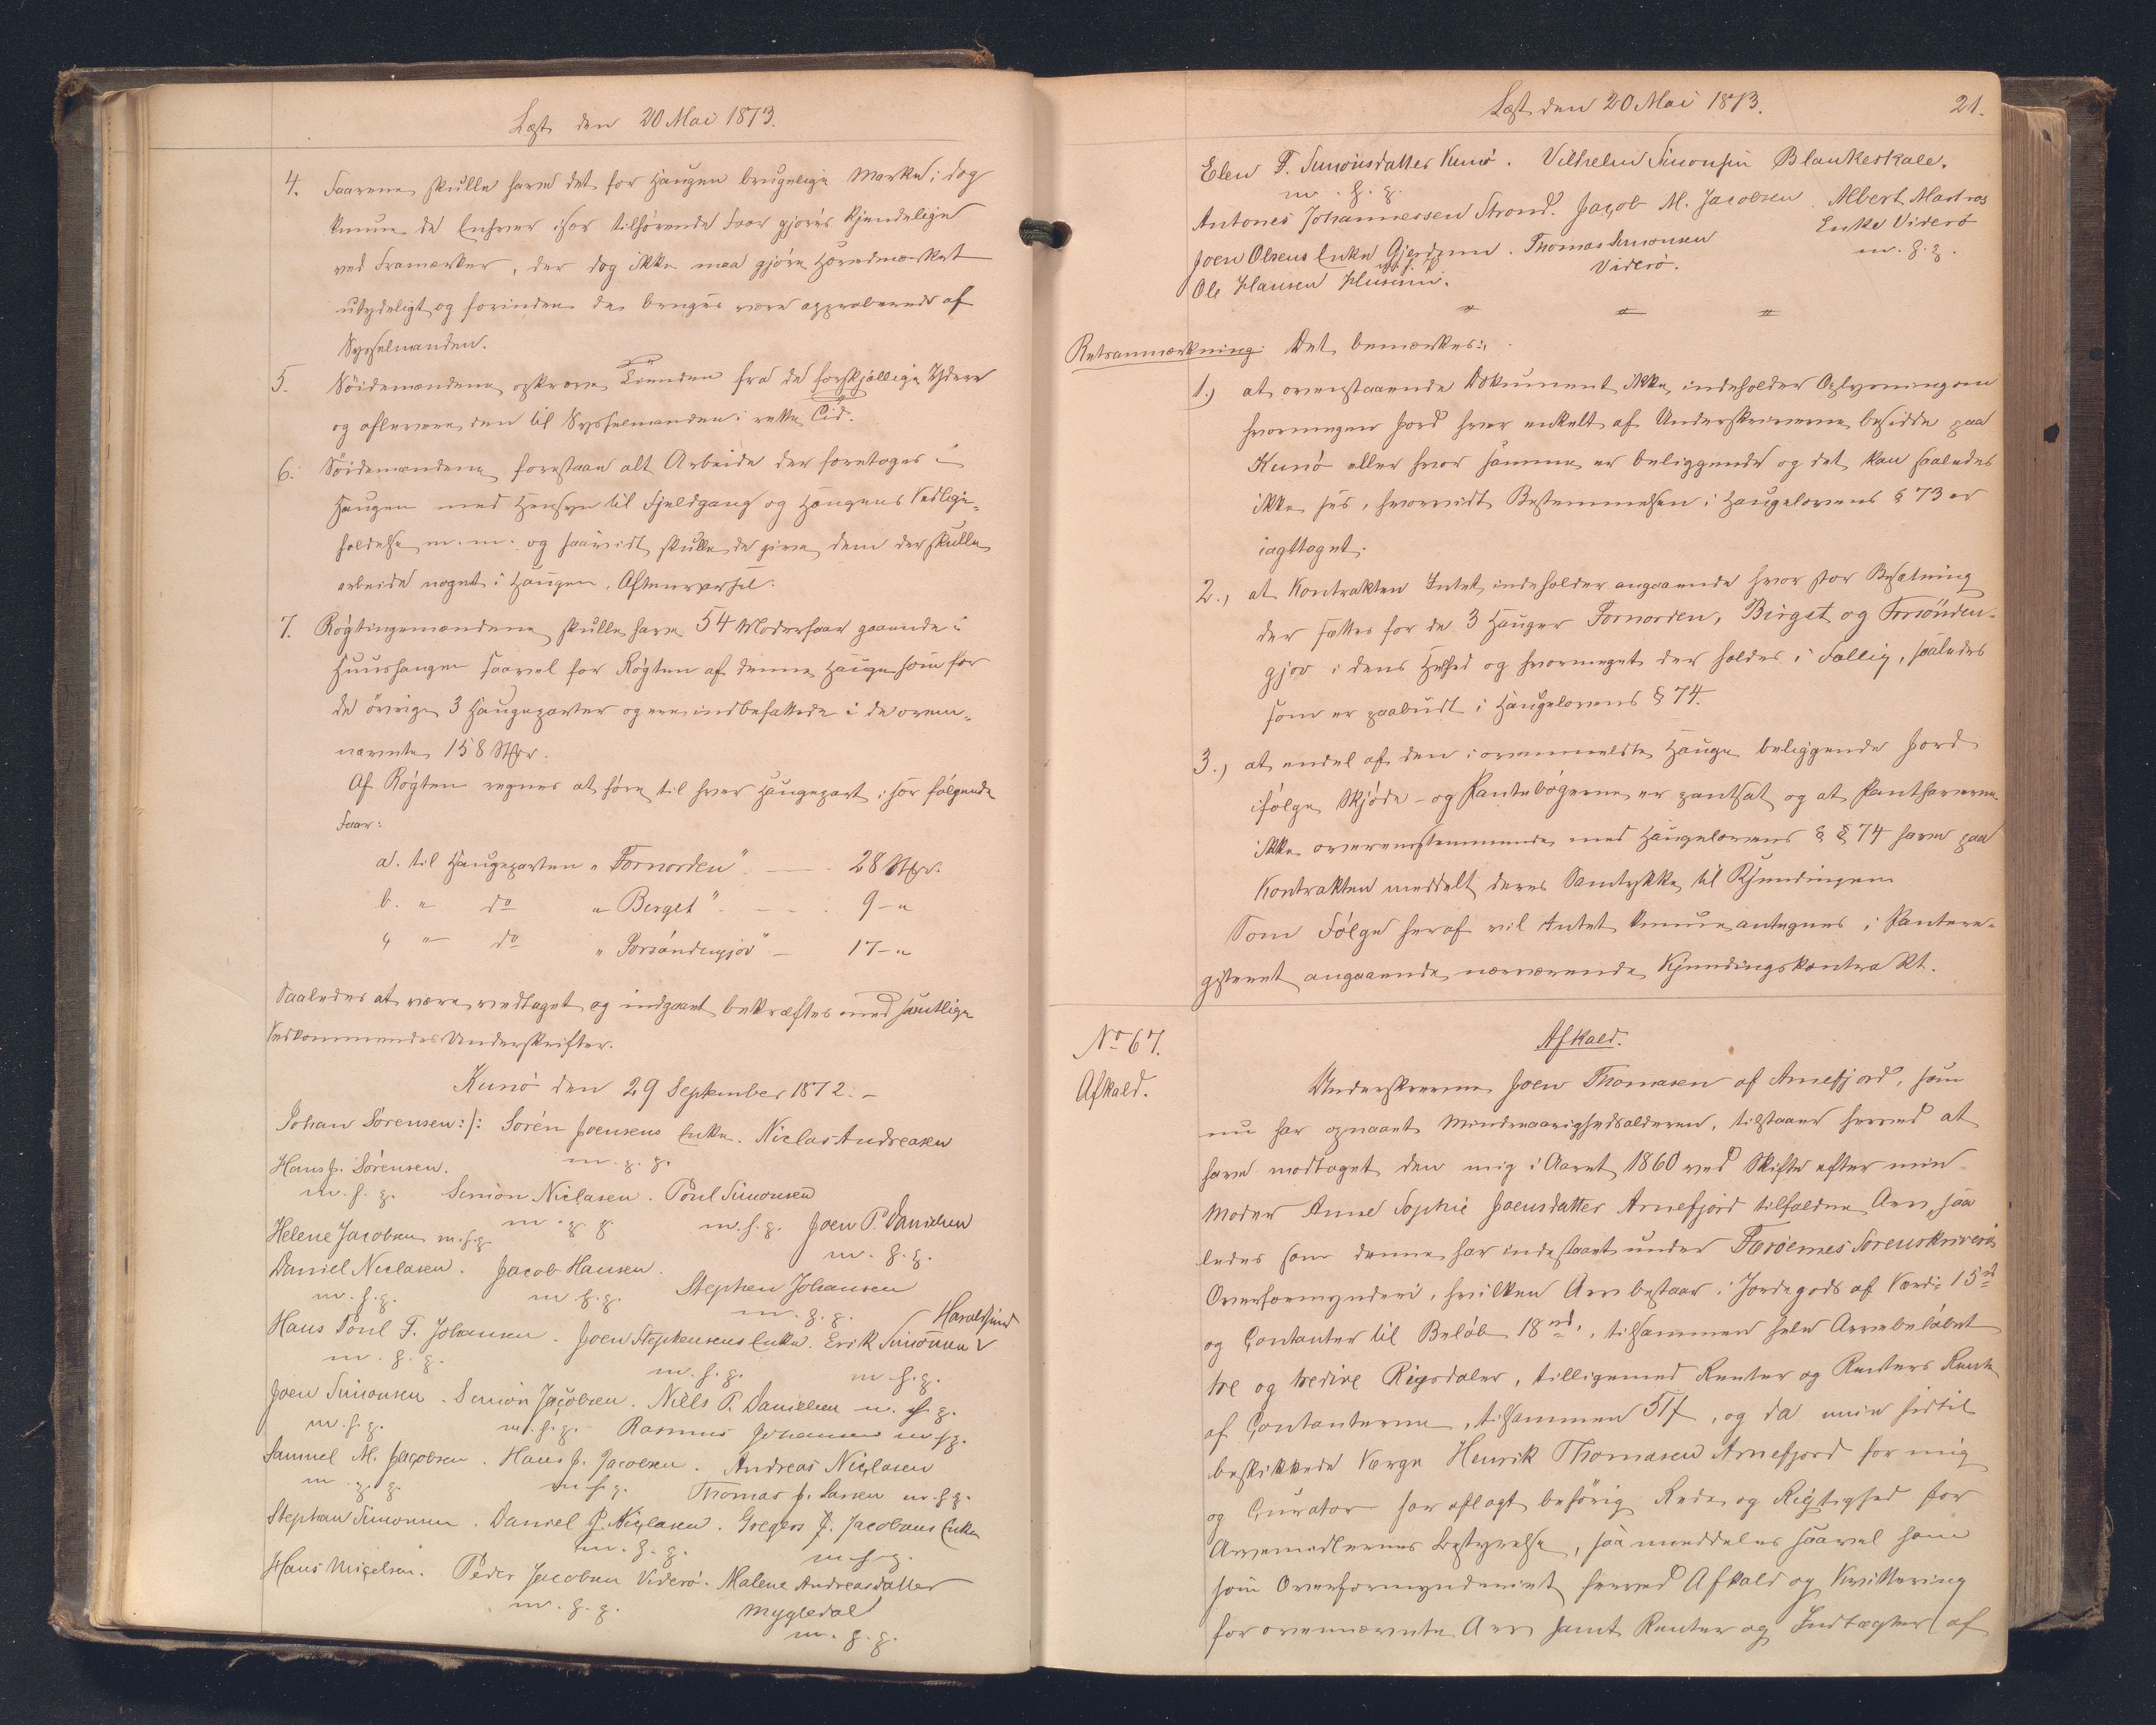 Læst den 20 Mai 1873.
4. Faarene skulle have det for Haugen brugelige Mærke; dog
kunne de Enhver især tilhørende Faar gjøres kjendelige
ved Framærker, der dog ikke maa gjøre Hovedmærket
utydeligt og forinden de bruges være approberede af
Sysselmanden.
5. Söidemændene opkræve Tienden fra de forskjællige Ydere
og aflevere den til Sysselmanden i rette Tid.
6. Söidemændene forestaae alt Arbeide der foretages i
Haugen med Hensyn til Fjeldgang og Haugens Vedlige-
holdelse m. m. og saavidt skulle de give dem der skulle
arbeide noget i Haugen, Aftenvarsel.
7. Røgtingsmændene skulle have 54 Moderfaar gaaende i
Huushaugen saavel for Røgten af denne Hauge som for
de övrige 3 Haugeparter og ere indbefattede i de oven-
nævnte 158 Stkr.
Af Røgten regnes at høre til hver Haugepart især følgende
Faar:
a. til Haugeparten "Fornorden" — 28 Stkr.
b. " do "Berget" — 9 - "
c. " do "Forsöndengjov" — 17 - "
Saaledes at være vedtaget og indgaaet bekræftes med samtlige
Vedkommendes Underskrifter.
Kunö den 29 September 1872. -
Johan Sørensen :/: Sörén Joensens Enke. Niclas Andreasen
Hans J. Sørensen. m. f. p.
m. f. p. Simon Niclasen. Pöul Simonsen
Helene Jacobsen m. f. p. m. f. p. m. f. p. Joen P. Danielsen
m. f. p.
Daniel Niclasen. Jacob Hansen. Stephen Johansen
m. f. p. m. f. p. m. f. p. Haraldsund
Hans Pöul F. Johansen. Joen Stephensens Enke. Erik Simonsen
m. f. p. m. f. p. m. f. p.
Joen Simonsen. Simon Jacobsen. Niels P. Danielsen m. f. p.
m. f. p. m. f. p. Rasmus Johansen m. f. p.
Samuel M. Jacobsen. Hans J. Jacobsen. Andreas Niclasen
m. f. p. m. f. p. Thomas J. m. f. p.
Stephan Simonsen. Daniel P. Niclasen. Gregers J. Jacobsens Enke
m. f. p. m. f. p.
Hans Michelsen. Peder Jacobsen Viderö. Malene Andreasdatter
m. f. p. Mygledal
m. f. p.
Læst den 20 Mai 1873. 21.
Elen F. Simonsdatter Kunö. Vilhelm Simonsen Blankeskale.
m. f. p.
Antones Johannessen Strond. Jacob M. Jacobsen. Albert
Enke Viderö
Joen Olsens Enke Gjerdum. Thomas Simonsen m. f. p.
Viderö.
Ole Hansen Husum.
Retsanmærkning: Det bemærkes:
1.) at ovenstaaende Dokument ikke indeholder Oplysning om
hvormegen Jord hver enkelt af Underskriverne besidde paa
Kunö eller hvor samme er beliggende og det kan saaledes
ikke sees, hvorvidt Bestemmelsen i Haugelovens § 73 er
iagttaget.
2., at Kontrakten Intet indeholder angaaende hvor stor Besætning
der sættes for de 3 Hauger Fornorden, Birget og Forsönden-
gjov i dens Helhed og hvormeget der holdes i Fællig, saaledes
som er paabudt i Haugelovens § 74.
3., at endel af den i ovenmeldte Hauge beliggende Jord
ifölge Skjöde- og Pantebögerne er pantsat og at Panthaverne
ikke overensstemmende med Haugelovens § § 74 have paa
Kontrakten meddelt deres Samtykke til Kjendingen
Som Følge heraf vil Intet kunne antegnes i Pantere-
gisteret angaaende nærværende Kjendingskontrakt.
No 67.
Afkald.
Afkald.
Underskrevne Joen Thomasen af Arnefjord, som
nu har opnaaet Mindreaarighedsalderen, tilstaaer herved at
have modtaget den mig i Aaret 1860 ved Skifte efter min
Moder Anne Sophie Joensdatter Arnefjord tilfaldne Arv, saa
ledes som denne har indestaaet under Færøernes Sorenskriveris
Overformynderi, hvilken Arv bestaar i Jordegods af Værdi 15 rd
og Contanter til Beløb 18 rd., tilsammen hele Arvebeløbet
tre og tredive Rigsdaler, tilligemed Renter og Renters Rente
af Contanterne, tilsammen 57 f, og da min hidtil
beskikkede Værge Henrik Thomasen Arnefjord for mig
og Curator har aflagt behörig Rede og Rigtighed for
Arvemidlernes Bestyrelse, saa meddeles saavel ham
som Overformynderiet herved Afkald og Kvittering
for ovennævnte Arv samt Renter og Indtægter af